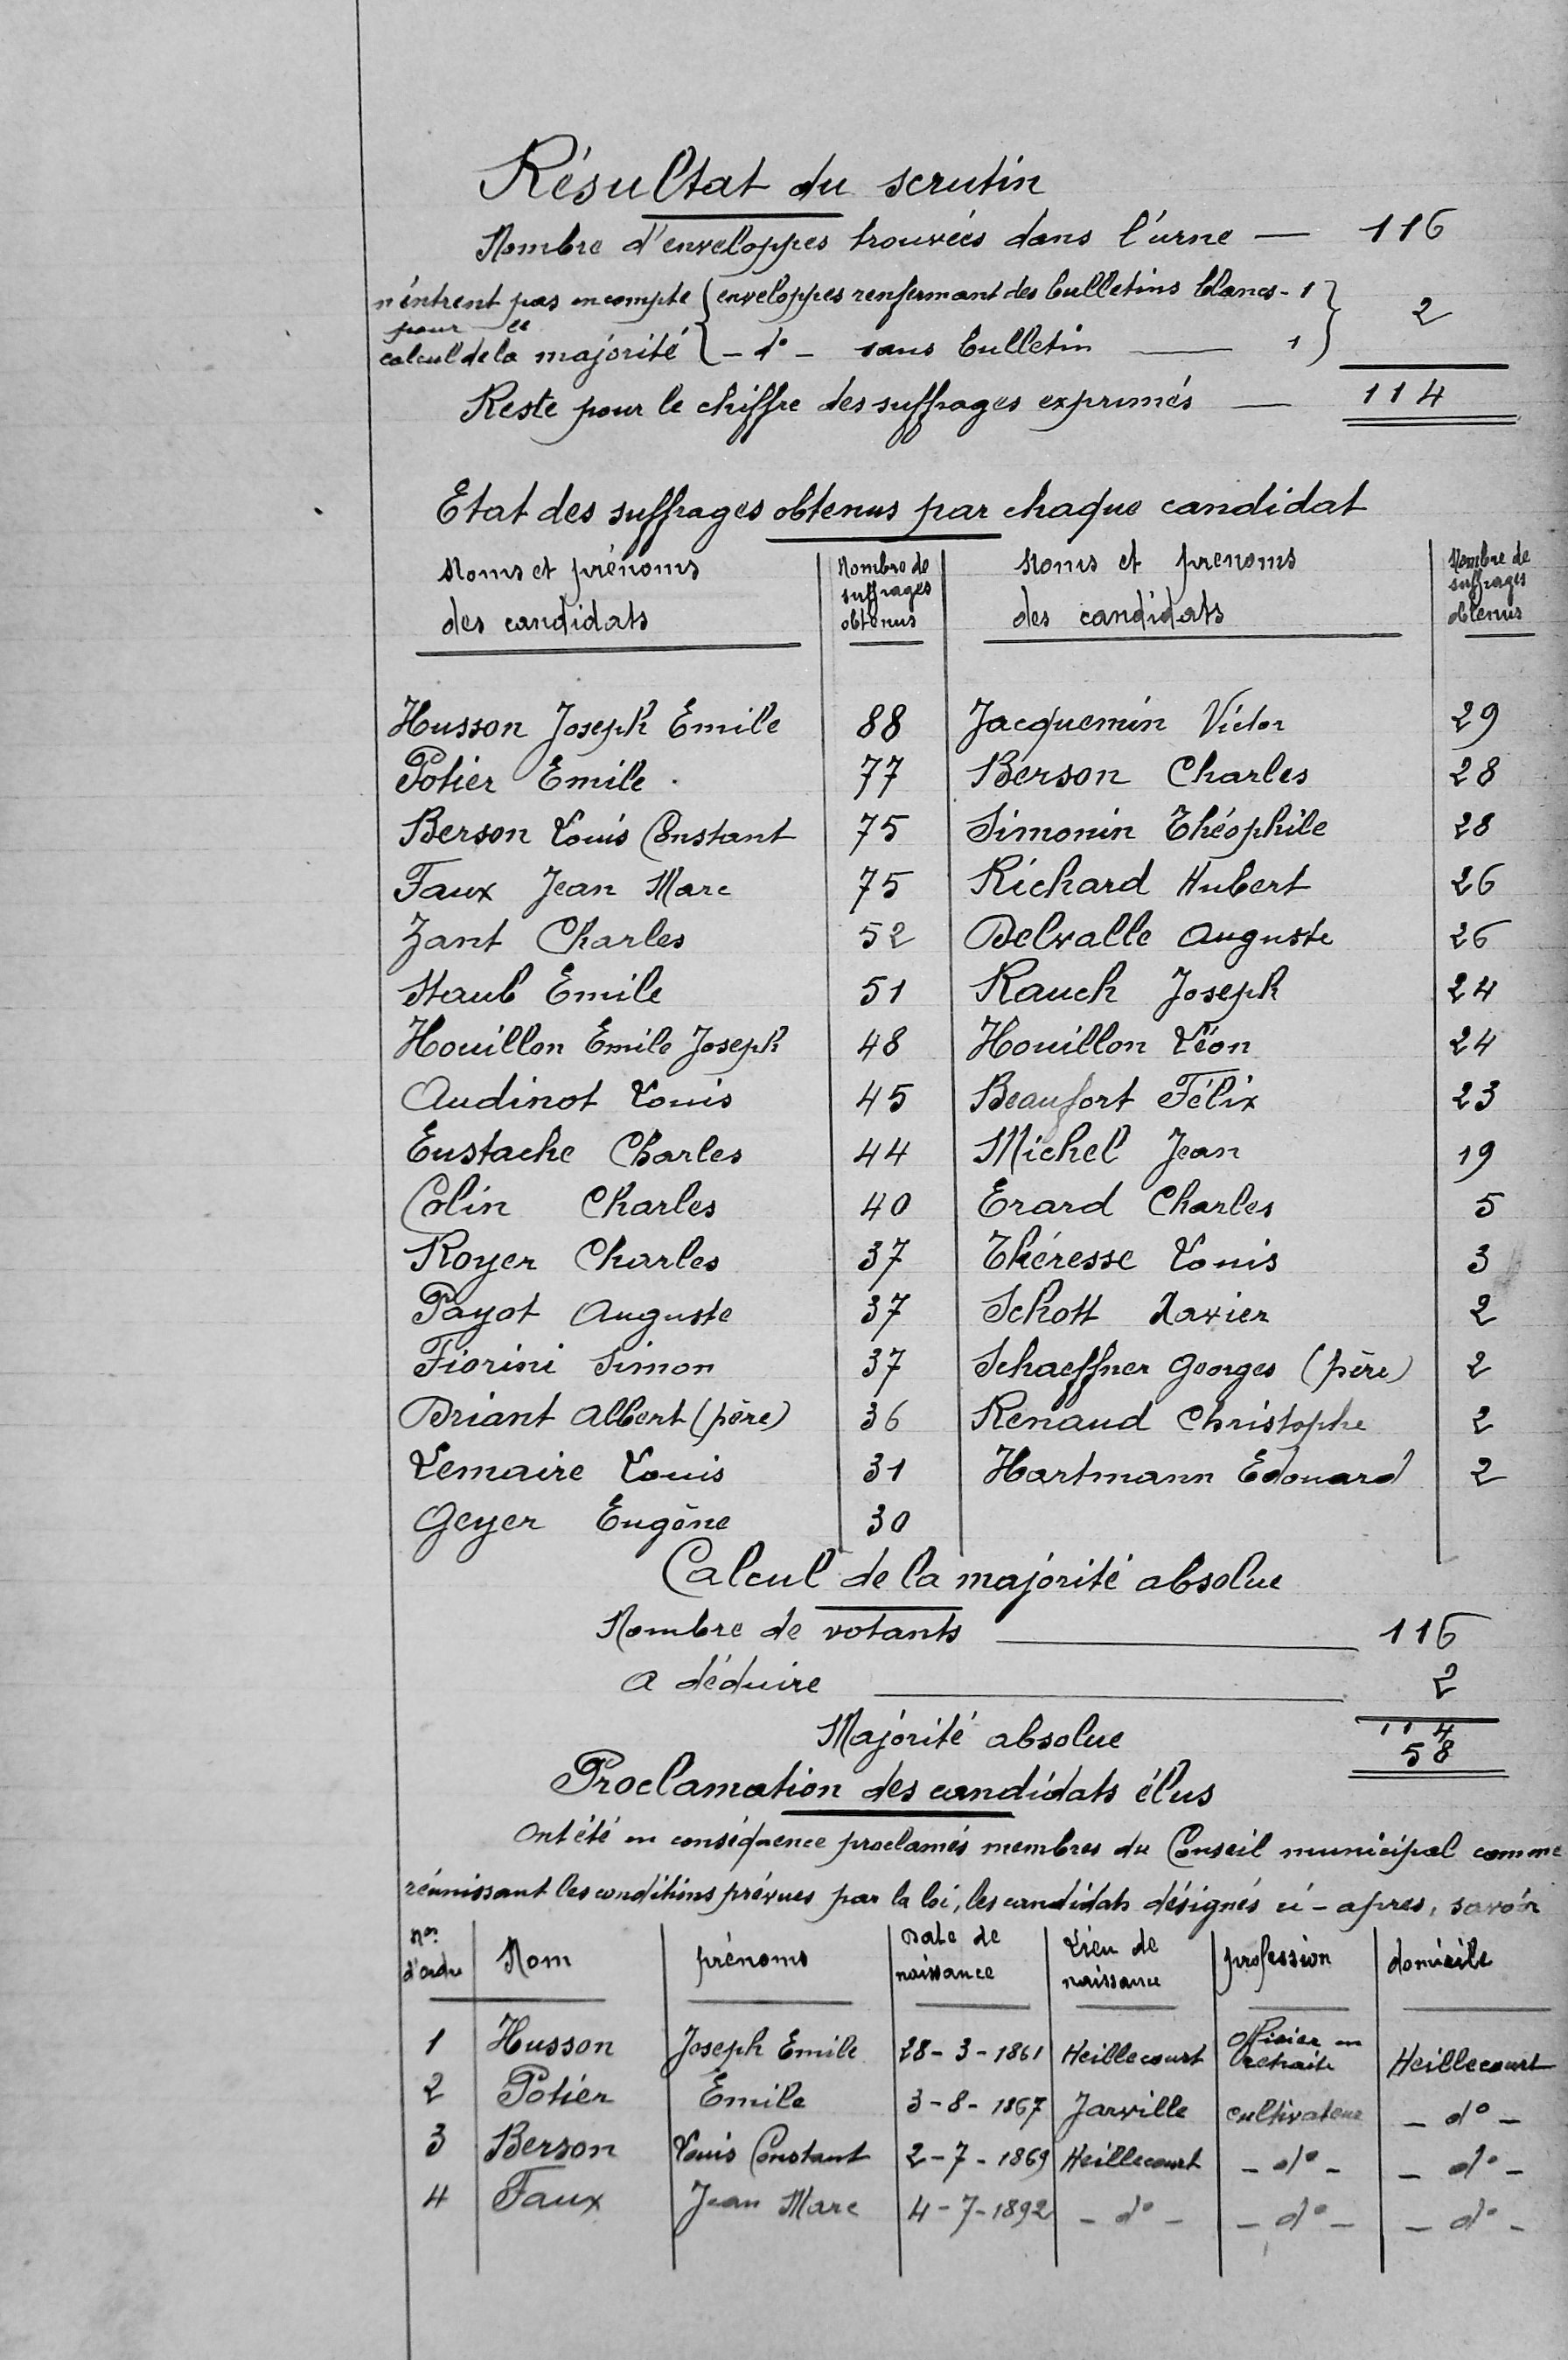 Résultat du scrutin
Nombre d'enveloppes trouvées dans l'urne — 116
n'entrent pas en compte { enveloppes renfermant des bulletins blancs - 1 } 2
pour le
calcul de la majorité { - d° - sans bulletin — 1 }
Reste pour le chiffre des suffrages exprimés — 114
Etat des suffrages obtenus par chaque candidat
Noms et prénoms des candidats | Nombre de suffrages obtenus | Noms et prenoms des candidats | Nombre de suffrages obtenus
Husson Joseph Emile 88 Jacquemin Victor 29
Potier Emile 77 Berson Charles 28
Berson Louis Constant 75 Simonin Théophile 28
Faux Jean Marc 75 Richard Hubert 26
Zant Charles 52 Delvalle Auguste 26
Staub Emile 51 Rauch Joseph 24
Houillon Emile Joseph 48 Houillon Léon 24
Audinot Louis 45 Beaufort Félix 23
Eustache Charles 44 Michel Jean 19
Colin Charles 40 Erard Charles 5
Royer Charles 37 Théresse Louis 3
Payot Auguste 37 Schott Xavier 2
Fiorini Simon 37 Schaeffner Georges (père) 2
Briant Albert (père) 36 Renaud Christophe 2
Lemaire Louis 31 Hartmann Edouard 2
Geyer Eugène 30
Calcul de la majorité absolue
Nombre de votants — 116
A déduire — 2
114
Majorité absolue 58
Proclamation des candidats élus
Ont été en conséquence proclamés membres du Conseil municipal comme
réunissant les conditions prévues par la loi, les candidats désignés ci-apres, savoir
Nos d'ordre | Nom | prénoms | Date de naissance | Lieu de naissance | profession | domicile
1 Husson Joseph Emile 28-3-1861 Heillecourt officier en retraite Heillecourt
2 Potier Emile 3-8-1867 Jarville cultivateur - d° -
3 Berson Louis Constant 2-7-1869 Heillecourt - d° - - d° -
4 Faux Jean Marc 4-7-1892 - d° - - d° - - d° -